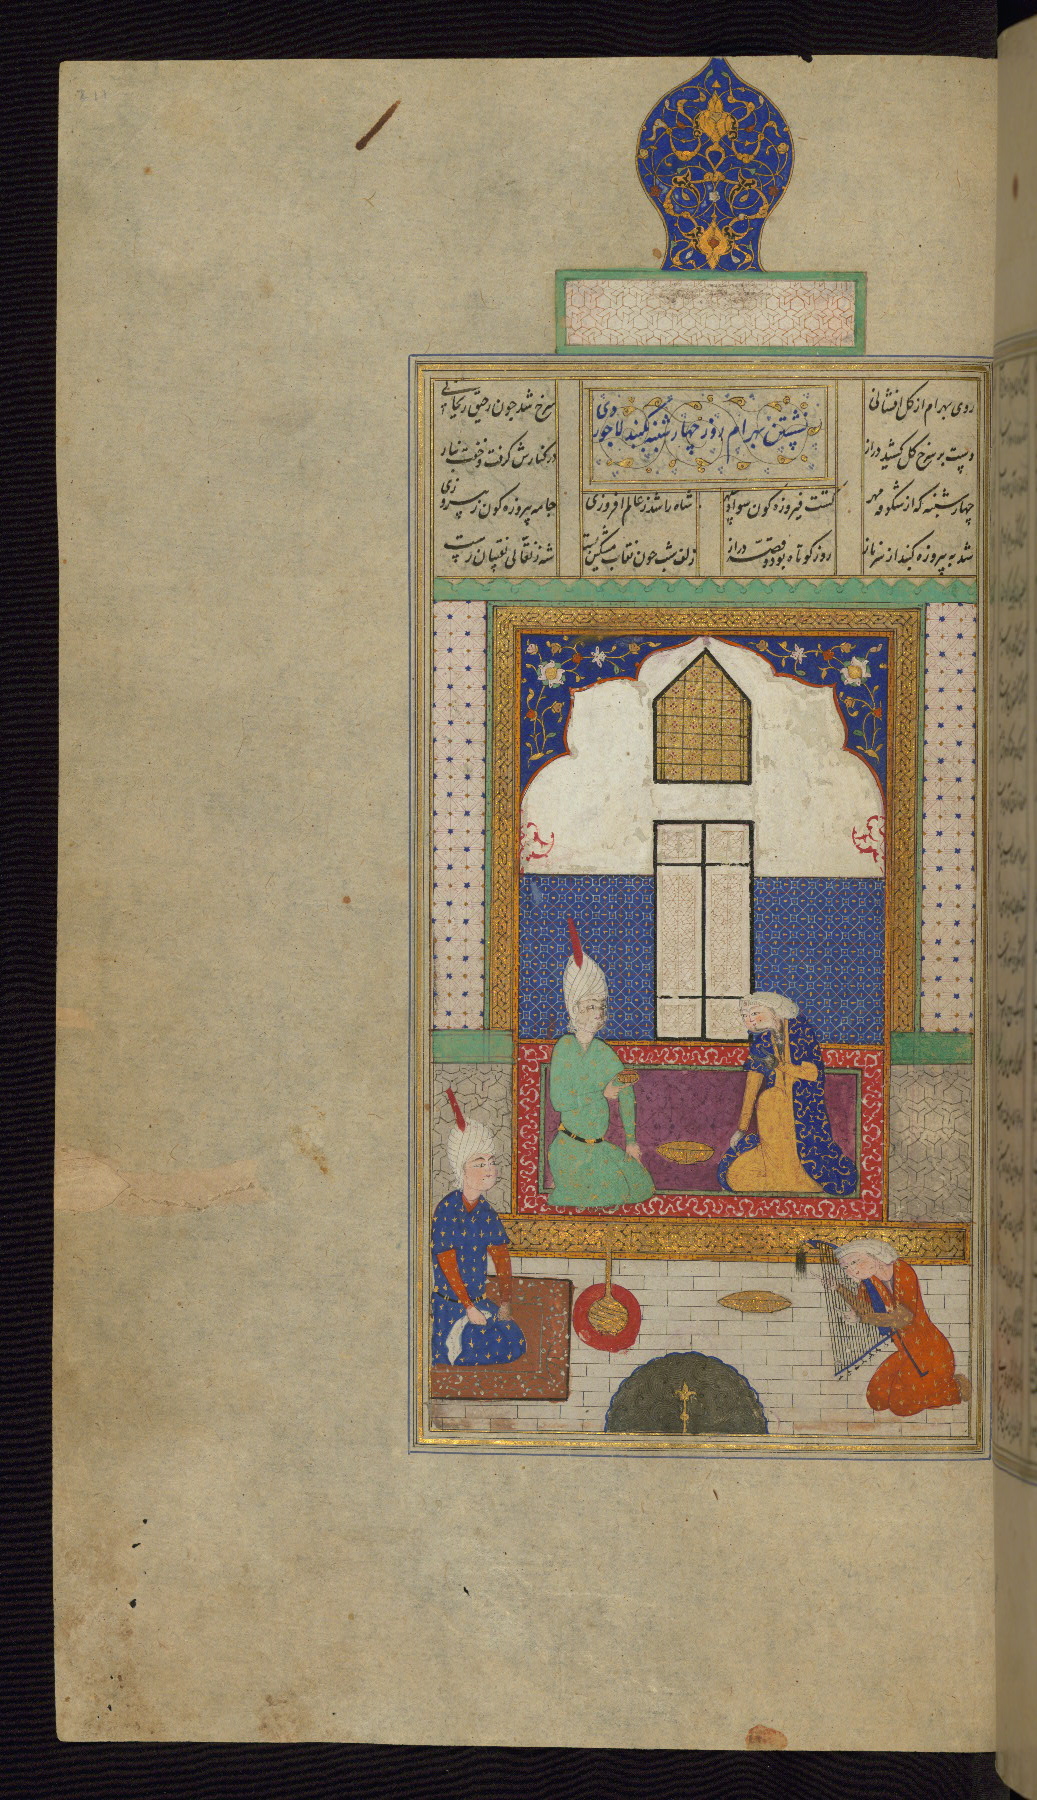 روی بهرام از گل افشانی
سرخ شد چون رحیق ریحانی
نشستن بهرام روز چهارشنبه بگنبد لاجوردی
دست بر سرخ گل کشید دراز
در کنارش گرفت و خفت بناز
چهارشنبه که از شکوفه مهر
گشت فیروزه گون سواد سپهر
شاه را شد ز عالم افروزی
جامه پیروزه گون ز پیروزی
شد به پیروزه گنبد از سر ناز
روز کوتاه بود و قصه دراز
زلف شب چون نقاب مشکین بست
شه ز نقالی نقیبان رست